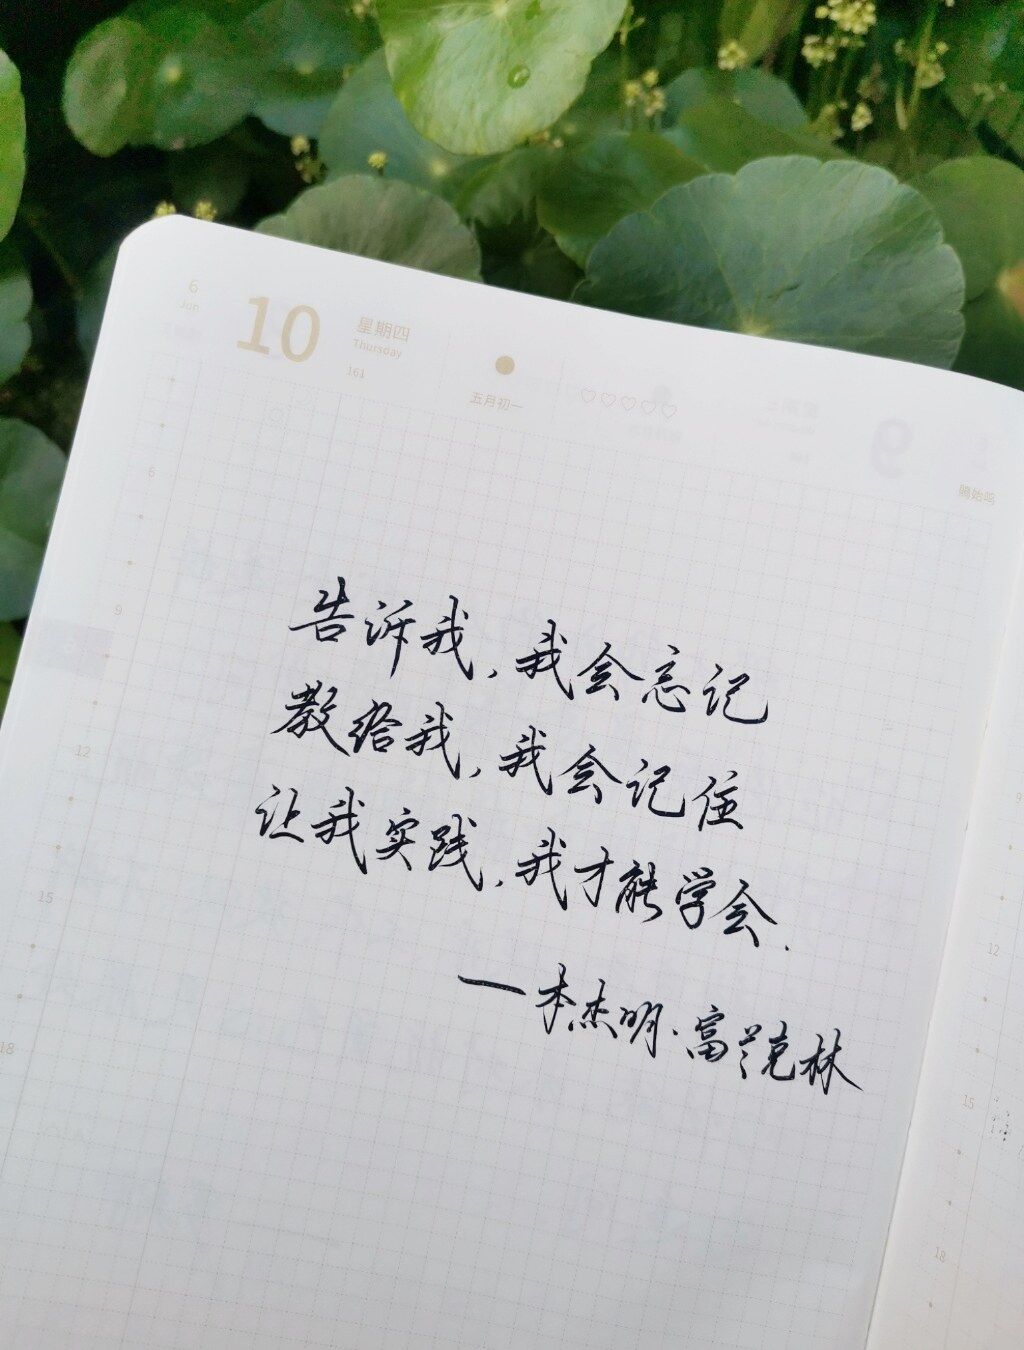 6
Jun
10
星期四
Thursday
161
五月初一
6
9
12
15
18
告诉我,我会忘记
教给我,我会记住
让我实践,我才能学会.
一本杰明·富兰克林
9
12
15
18